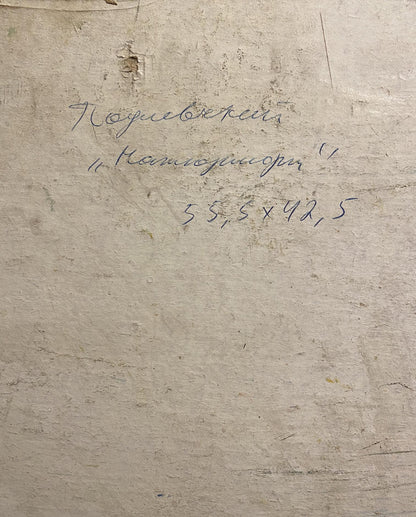 Подлевский
„Натюрморт"
55,5 х 42,5